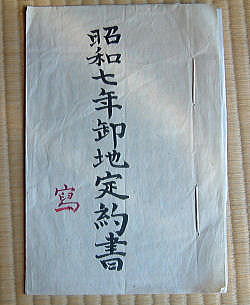 昭和七年卸地定約書
寫